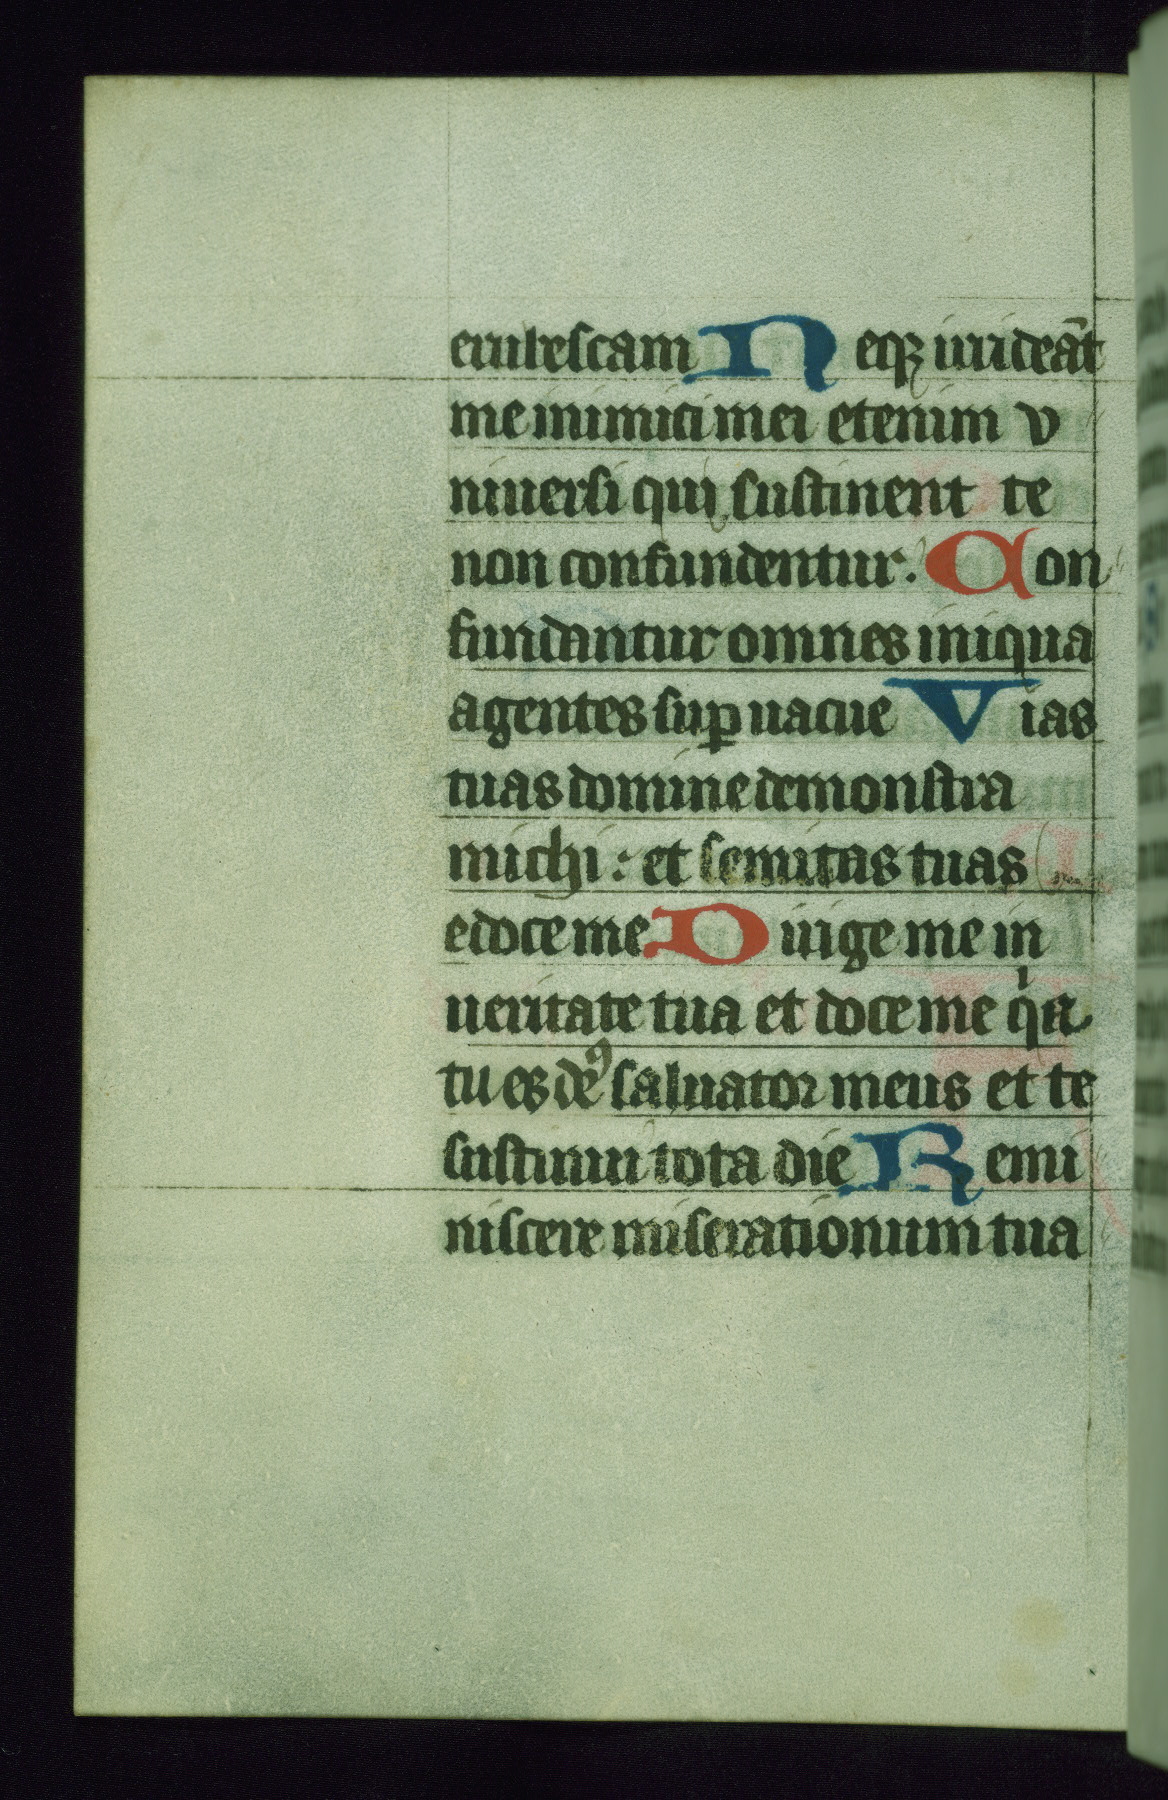 erubescam Neqꝫ irrideāt
me inimici mei etenim v
niuersi qui sustinent te
non confundentur. Con
fundantur omnes iniqua
agentes suꝑuacue Vias
tuas domine demonstra
michi : et semitas tuas
edoce me Dirige me in
ueritate tua et doce me qͥa
tu es deꝰ saluator meus et te
sustinui tota die Remi
niscere miserationum tua